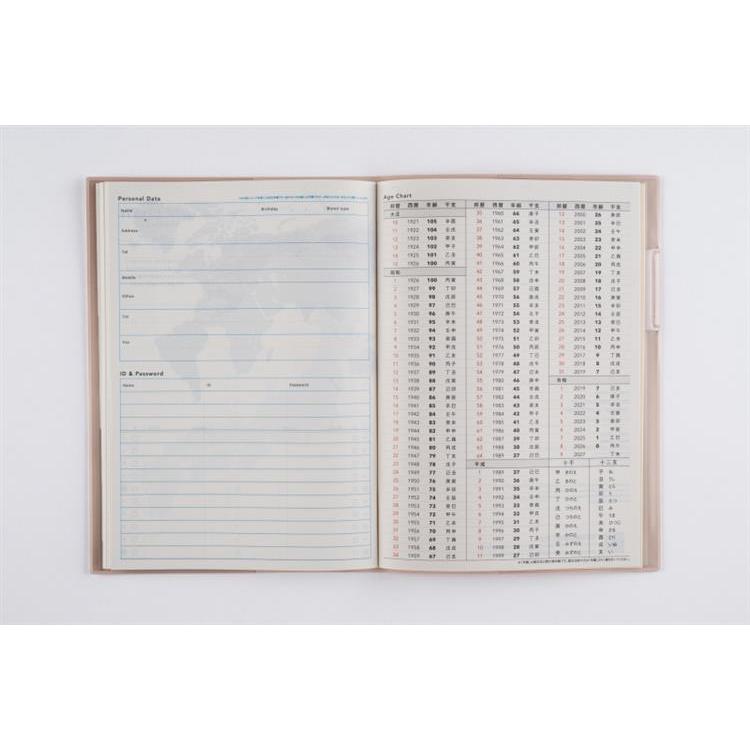 Personal Data
Name Birthday Blood type
Address
Tel
Mobile
Office
Tel
Fax
ID & Password
Name ID Password
Age Chart
邦暦 西暦 年齢 干支
大正
10 1921 105 辛酉
11 1922 104 壬戌
12 1923 103 癸亥
13 1924 102 甲子
14 1925 101 乙丑
15 1926 100 丙寅
昭和
1 1926 100 丙寅
2 1927 99 丁卯
3 1928 98 戊辰
4 1929 97 己巳
5 1930 96 庚午
6 1931 95 辛未
7 1932 94 壬申
8 1933 93 癸酉
9 1934 92 甲戌
10 1935 91 乙亥
11 1936 90 丙子
12 1937 89 丁丑
13 1938 88 戊寅
14 1939 87 己卯
15 1940 86 庚辰
16 1941 85 辛巳
17 1942 84 壬午
18 1943 83 癸未
19 1944 82 甲申
20 1945 81 乙酉
21 1946 80 丙戌
22 1947 79 丁亥
23 1948 78 戊子
24 1949 77 己丑
25 1950 76 庚寅
26 1951 75 辛卯
27 1952 74 壬辰
28 1953 73 癸巳
29 1954 72 甲午
30 1955 71 乙未
31 1956 70 丙申
32 1957 69 丁酉
33 1958 68 戊戌
34 1959 67 己亥
邦暦 西暦 年齢 干支
35 1960 66 庚子
36 1961 65 辛丑
37 1962 64 壬寅
38 1963 63 癸卯
39 1964 62 甲辰
40 1965 61 乙巳
41 1966 60 丙午
42 1967 59 丁未
43 1968 58 戊申
44 1969 57 己酉
45 1970 56 庚戌
46 1971 55 辛亥
47 1972 54 壬子
48 1973 53 癸丑
49 1974 52 甲寅
50 1975 51 乙卯
51 1976 50 丙辰
52 1977 49 丁巳
53 1978 48 戊午
54 1979 47 己未
55 1980 46 庚申
56 1981 45 辛酉
57 1982 44 壬戌
58 1983 43 癸亥
59 1984 42 甲子
60 1985 41 乙丑
61 1986 40 丙寅
62 1987 39 丁卯
63 1988 38 戊辰
64 1989 37 己巳
平成
1 1989 37 己巳
2 1990 36 庚午
3 1991 35 辛未
4 1992 34 壬申
5 1993 33 癸酉
6 1994 32 甲戌
7 1995 31 乙亥
8 1996 30 丙子
9 1997 29 丁丑
10 1998 28 戊寅
11 1989 27 己卯
邦暦 西暦 年齢 干支
12 2000 26 庚辰
13 2001 25 辛巳
14 2002 24 壬午
15 2003 23 癸未
16 2004 22 甲申
17 2005 21 乙酉
18 2006 20 丙戌
19 2007 19 丁亥
20 2008 18 戊子
21 2009 17 己丑
22 2010 16 庚寅
23 2011 15 辛卯
24 2012 14 壬辰
25 2013 13 癸巳
26 2014 12 甲午
27 2015 11 乙未
28 2016 10 丙申
29 2017 9 丁酉
30 2018 8 戊戌
31 2019 7 己亥
令和
1 2019 7 己亥
2 2020 6 庚子
3 2021 5 辛丑
4 2022 4 壬寅
5 2023 3 癸卯
6 2024 2 甲辰
7 2025 1 乙巳
8 2026 0 丙午
9 2027 丁未
十干 十二支
甲 きのえ 子 ね
乙 きのと 丑 うし
丙 ひのえ 寅 とら
丁 ひのと 卯 う
戊 つちのえ 辰 たつ
己 つちのと 巳 み
庚 かのえ 午 うま
辛 かのと 未 ひつじ
壬 みずのえ 申 さる
癸 みずのと 酉 とり
戌 いぬ
亥 い